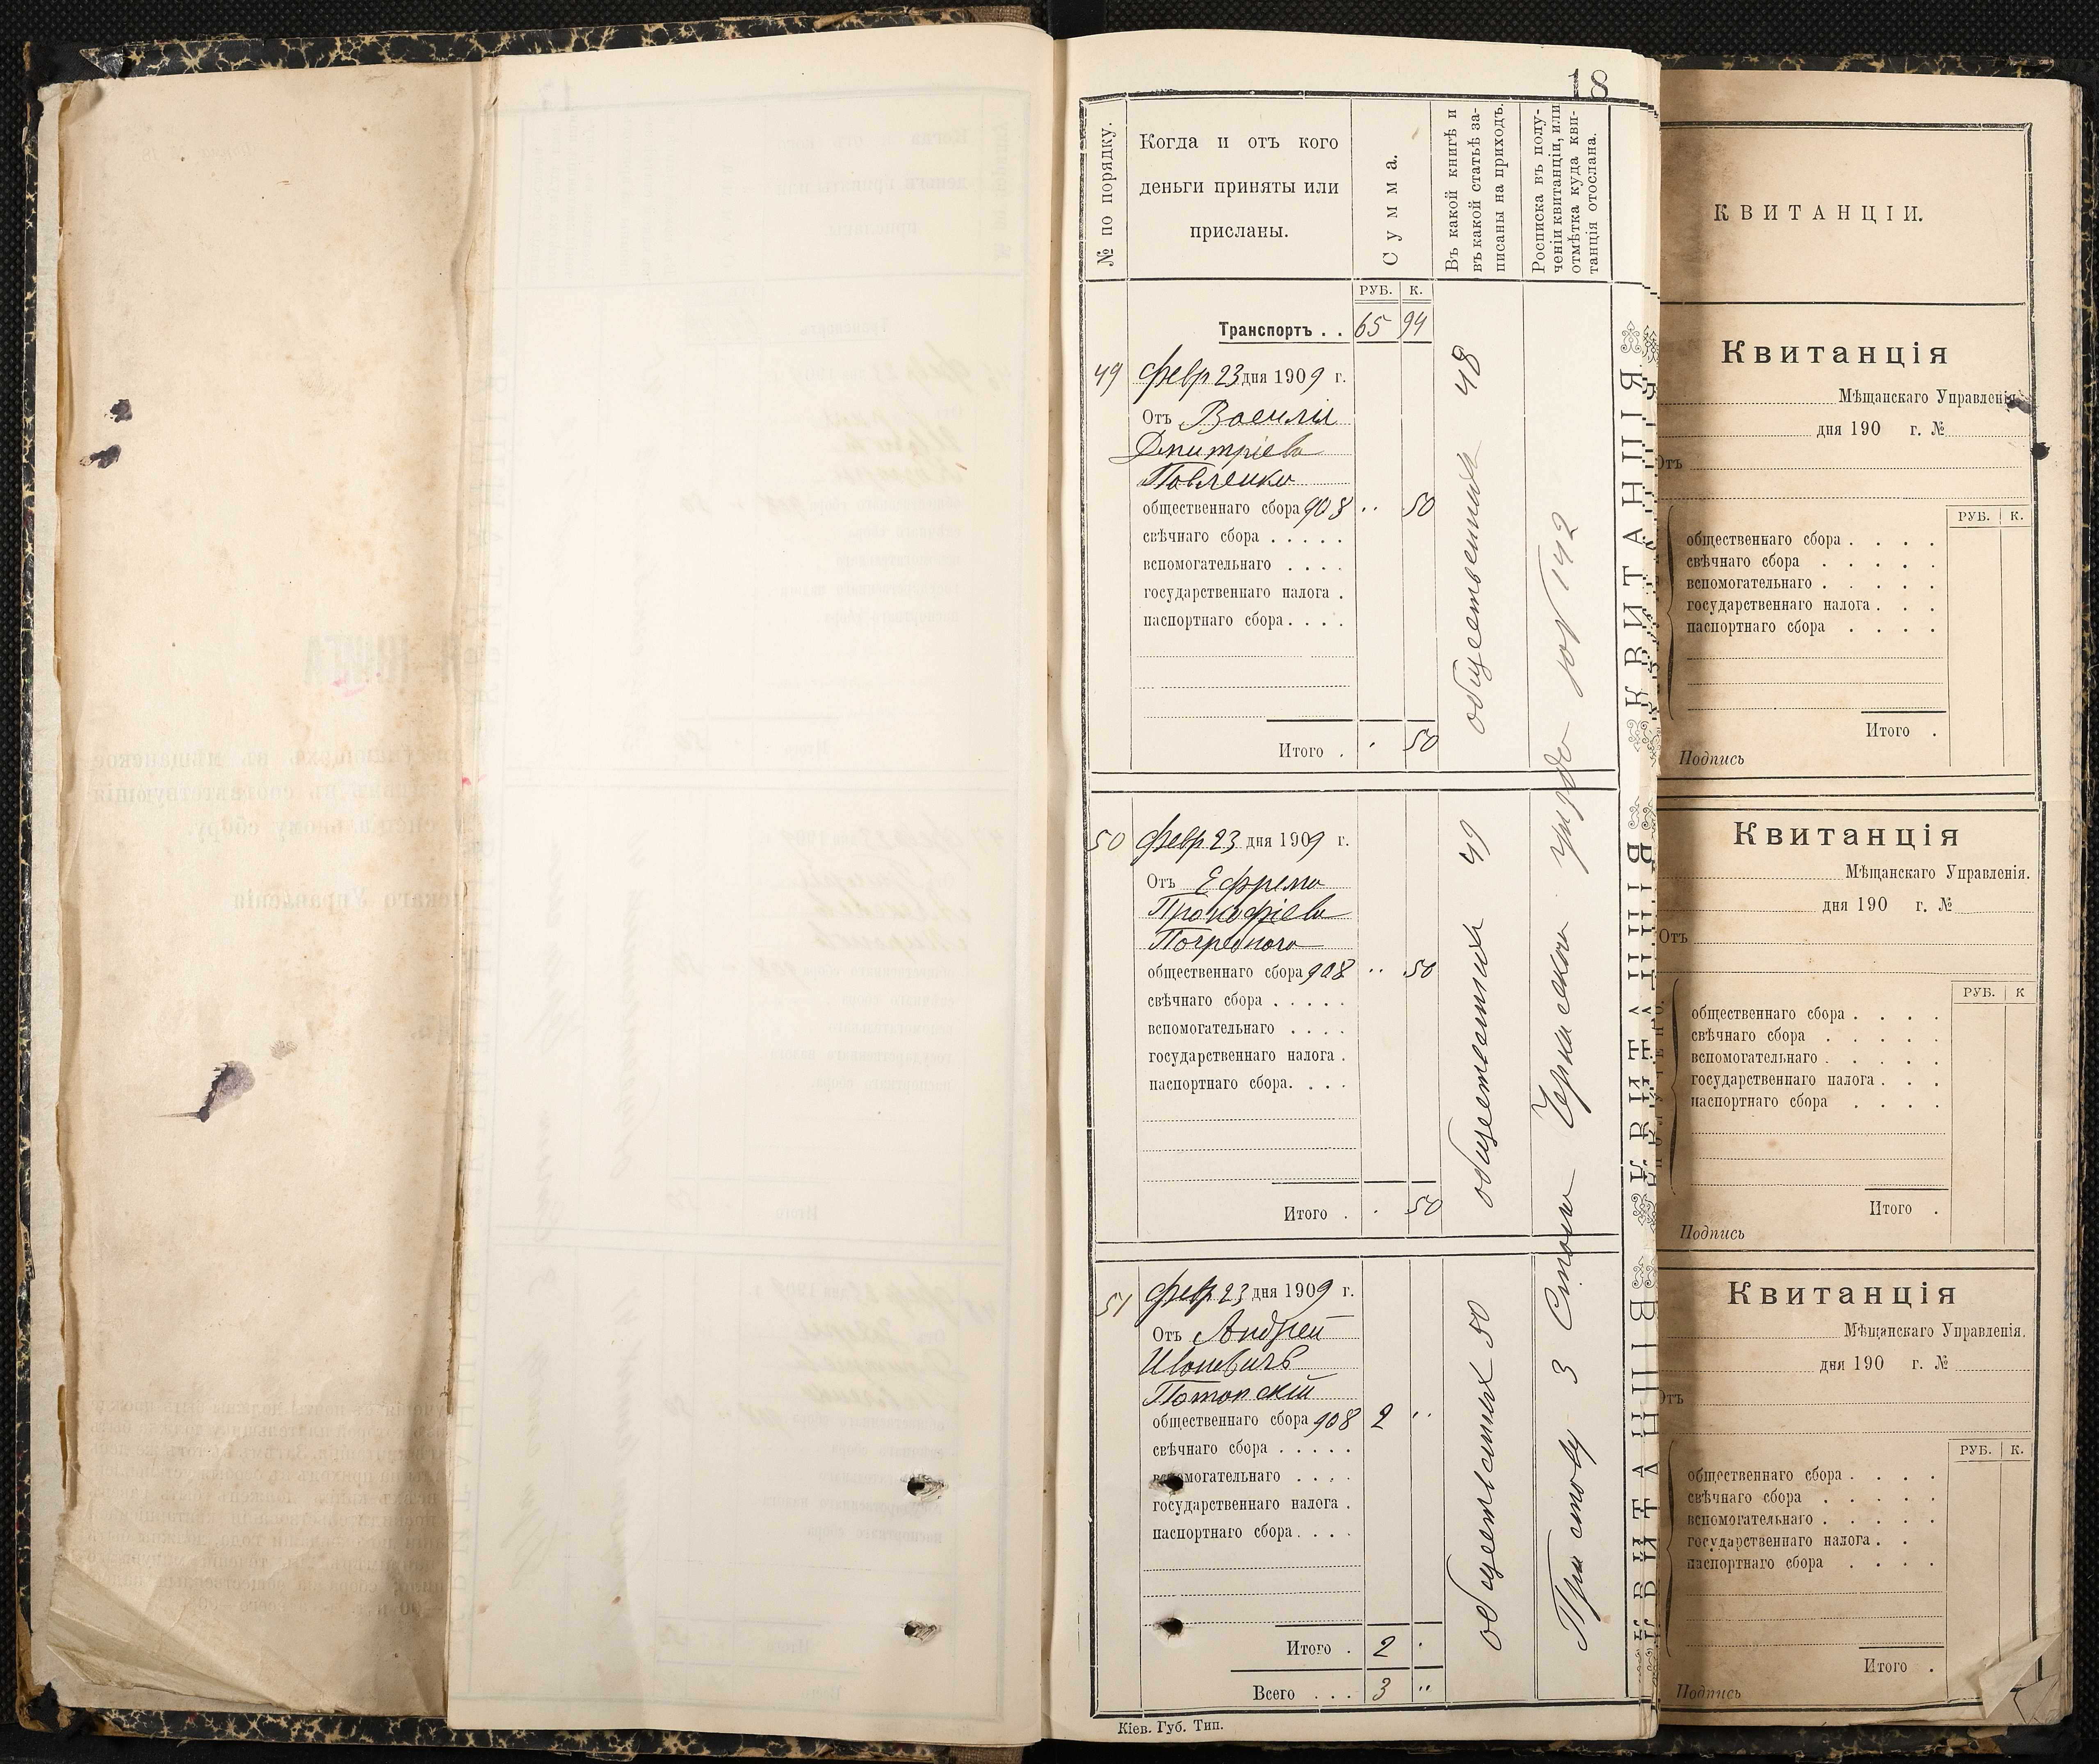 18
№ по порядку.
Когда и отъ кого
деньги приняты или
присланы.
Сумма.
Въ какой книгѣ и
въ какой статьѣ за-
писаны на приходъ.
Росписка въ полу-
ченіи квитанціи, или
отмѣтка куда кви-
танція отослана.
РУБ. К.
Транспортъ . . 65 94
49 Февр 23 дня 1909 г.
Отъ Василія
Дмитріева
Павленко
общественнаго сбора 908 " 50
свѣчнаго сбора . . . . .
вспомогательнаго . . . .
государственнаго налога .
паспортнаго сбора . . . .
Итого . . 50
общественных 48
50 Февр 23 дня 1909 г.
Отъ Ефрема
Прокофіева
Погребного
общественнаго сбора 908 " 50
свѣчнаго сбора . . . . .
вспомогательнаго . . . .
государственнаго налога .
паспортнаго сбора. . . .
Итого . . 50
общественных 49
51 Февр 23 дня 1909 г.
Отъ Андрей
Ивановичъ
общественнаго сбора 908 2 "
свѣчнаго сбора . . . . .
вспомогательнаго . . . .
государственнаго налога .
паспортнаго сбора . . . .
Итого . 2 .
Всего . . . 3 "
общественных 50
Приставу 3 Стана Черкаскаго уезда 142
Кіев. Губ. Тип.
КВИТАНЦІЯ
КВИТАНЦІИ.
Квитанція
Мѣщанскаго Управленія
дня 190 г. №
Отъ
РУБ. К.
общественнаго сбора . . . .
свѣчнаго сбора . . . . .
вспомогательнаго . . . . .
государственнаго налога . . .
паспортнаго сбора . . . .
Итого .
Подпись
Квитанція
Мѣщанскаго Управленія.
дня 190 г. №
Отъ
РУБ. К
общественнаго сбора . . . .
свѣчнаго сбора . . . . .
вспомогательнаго . . . . .
государственнаго налога . . .
паспортнаго сбора . . . .
Итого .
Подпись
Квитанція
Мѣщанскаго Управленія.
дня 190 г. №
Отъ
РУБ. К.
общественнаго сбора . . . .
свѣчнаго сбора . . . . .
вспомогательнаго . . . . .
государственнаго налога . . .
паспортнаго сбора . . . .
Итого .
Подпись